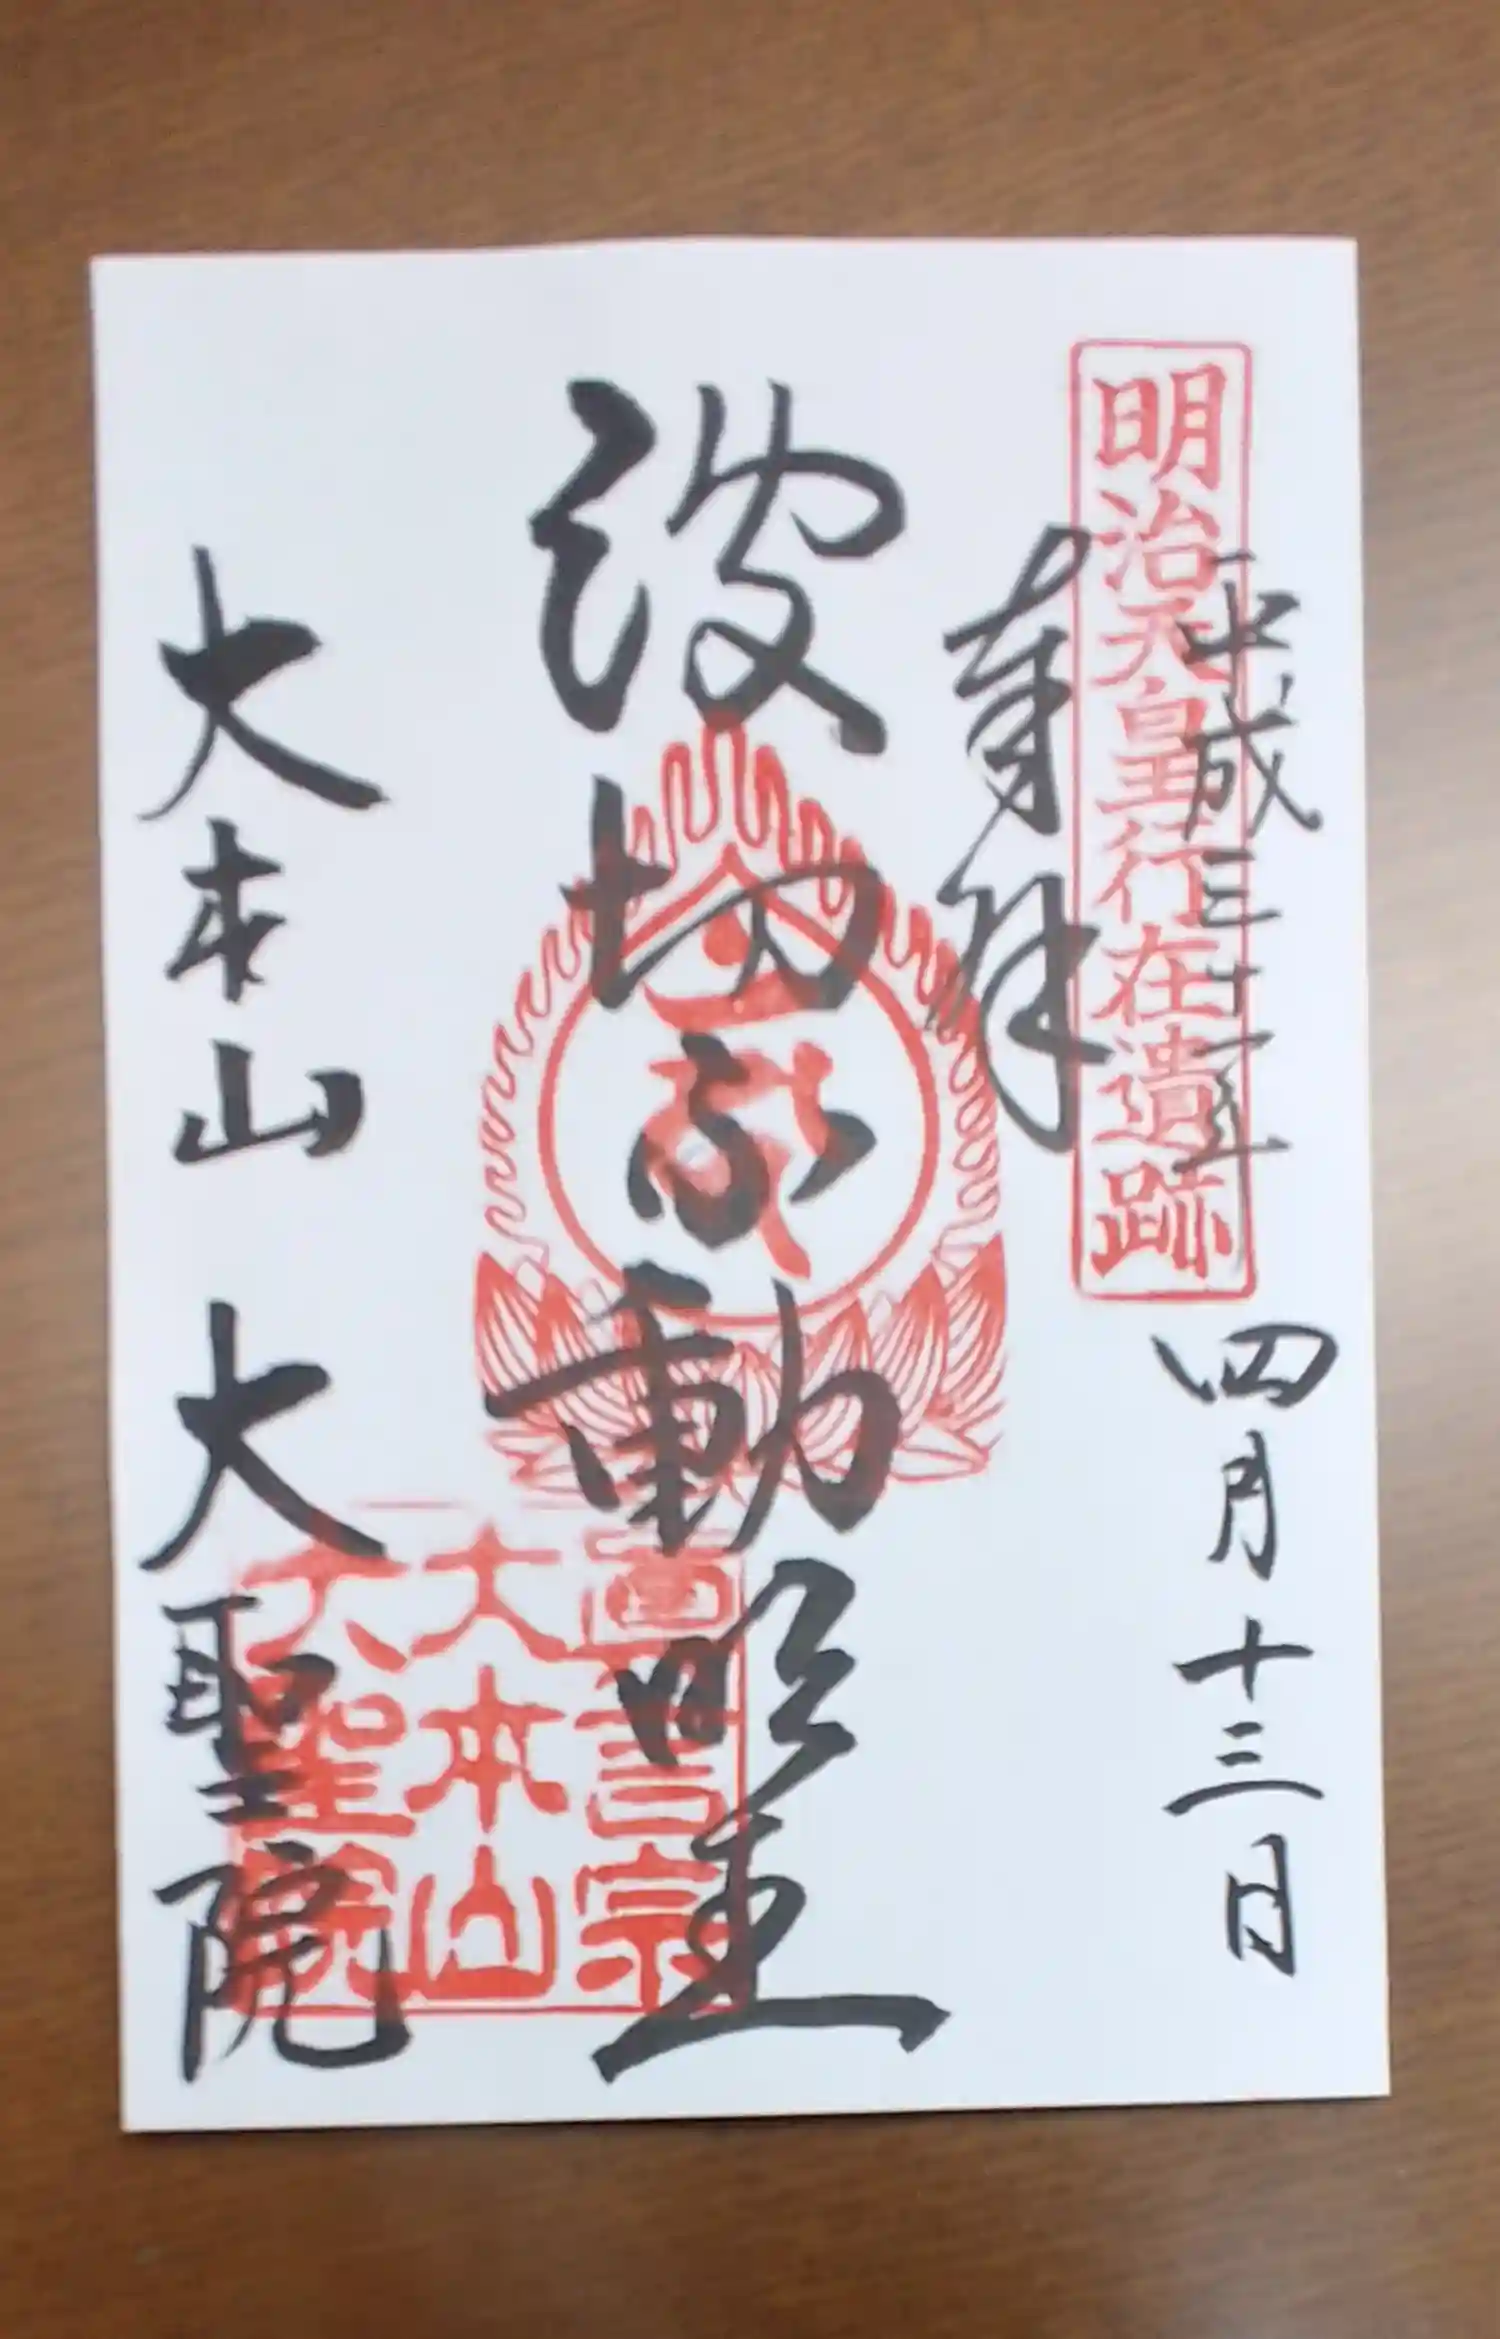 明治天皇行在遺跡
平成三十一年四月十三日
奉拝
波切不動明王
真言宗
大本山
大聖院
大本山 大聖院